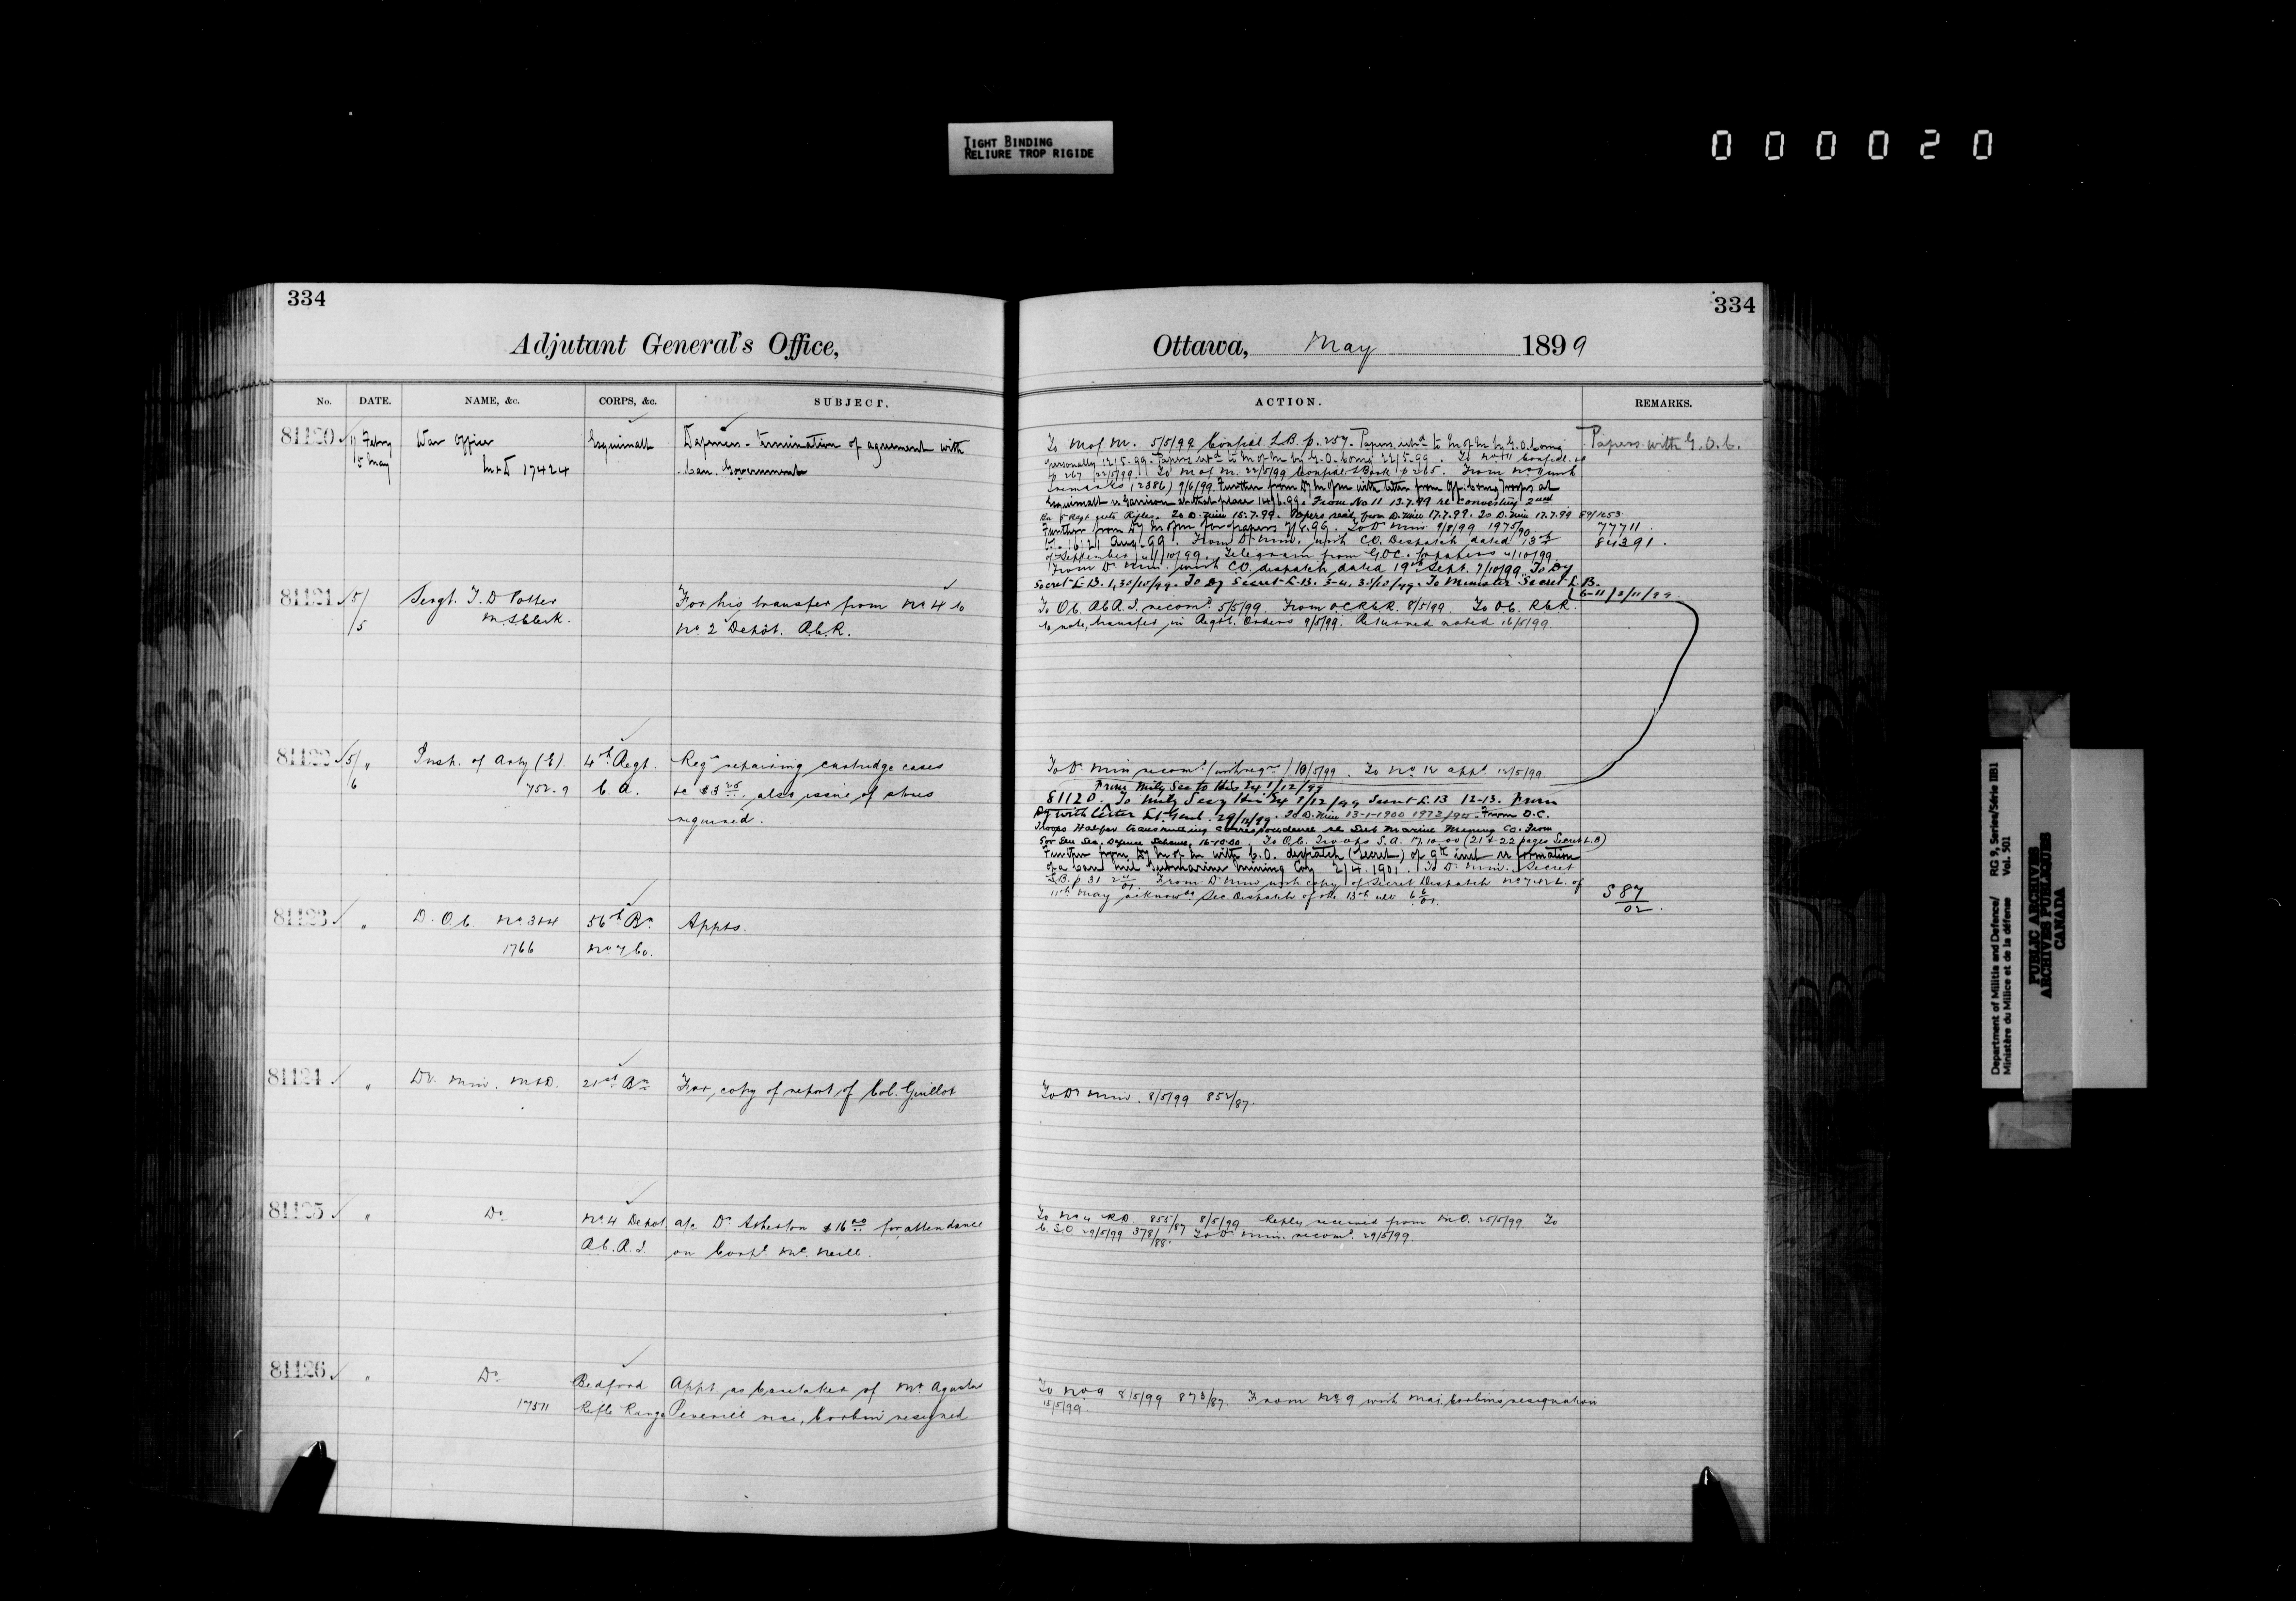 TIGHT BINDING
RELIURE TROP RIGIDE
000020
334
Adjutant General's Office,
No. DATE. NAME, &c. CORPS, &c. SUBJECT.
81120 11 Febry War Office Esquimalt Defences - termination of agreement with
5 May M & D 17424 Can. Government
81121 5/5 Sergt. T. D Potter For his transfer from No 4 to
M. S. Clerk. No 2 Depôt. R.C.R.
81122 5/6 " Insp. of Arty (E). 4th Regt. Reqn repairing cartridge cases
752.9 C. A. &c $3 25 also issue of stores
required.
81123 " D. O. C. No 3 & 4 56th Bn Appts.
1766 No 7 Co.
81124 " Dr. Min. M & D. 21st Bn For copy of report of Col. Guillot
81125 " Do No 4 Depot a/c Dr Asherton $16 00 for attendance
R.C.R.I. on Corpl. McNeill.
81126 " Do Bedford Appt as Caretaker of Mr
17511 Rifle Range vice, Corbin resigned
334
Ottawa, May 1899
ACTION. REMARKS.
To M of M. 5/5/99 Confid. L.B. p. 257. Papers retd to M of M by G.O. Comg Papers with G.O.C.
personally 12/5.99. Papers retd to M of M by G.O. Comg 22/5.99. To No 11 Confid.
p 267 22/5/99. To M of M. 22/5/99 Confid. L Book p 265. From No 11 with
remarks (2386) 9/6/99. Further from Dy M of M with letter from Off. Comg Troops at
Esquimalt re Garrison at that place 14/6.99. From No 11 13.7.99 re converting 2nd
Bn 5 Regt into Rifles. To D. Min 15.7.99. Papers recd from D. Min 17.7.99. To D. Min 17.7.99 89/1053
Further from Dy M of M for papers To Dr Min 9/8/99 1975/90 77711.
21 Aug. 99. From Dr Min. with C.O. Despatch dated 13th 84391.
of September 1/10/99. Telegram from G.O.C. for papers 4/10/99.
From Dr Min. with C.O. dispatch dated 19th Sept. 7/10/99. To Dy
Secret L.B. 1, 30/10/99. To Dy Secret L.B. 3-4, 30/10/99. To Minister Secret L.B.
6-11/2/11/99.
To O.C. recomd 5/5/99. From O.C.R.C.R. 8/5/99. To O.C. R.C.R.
to note, transfer in Regtl. Orders 9/5/99. Returned noted 16/5/99.
To Dr Min recomd (with reqn) 10/5/99. To No 12 appd. 12/5/99
From Mily Sec to His Ex 1/12/99
81120. To Mily Secy His Ex 7/12/99 Secret L.B 12-13. From
Dy with letter 29/12/99. To D. Min 13-1-1900 1973/94. From O.C.
Troops Halifax transmitting correspondence re Sub Marine Mining Co. From
for Sec. Defence Scheme, 16-10-00. To O.C. Troops S.A. 17.10.00 (21 & 22 pages Secret L.B)
Further from Dy M of M with C.O. despatch (Secret) of 9th inst re formation
of a Can. Mil. Submarine Mining Coy 2/4.1901. To Dr Min. Secret
L.B. p. 31 From Dr Min with copy of Secret Dispatch No of
11th May Sec. Despatch of the 13th ulto S 87/02.
To Dr Min. 8/5/99 852/87.
To No 4 RD. 855/87 8/5/99 Reply received from M.O. 25/5/99 To
C.S.O. 29/5/99 378/88. To Dr Min. recomd. 29/5/99
To No 9 8/5/99 873/87. From No 9 with Maj. Corbin's resignation
15/5/99.
Department of Militia and Defence/ RG 9, Series/Série IIB1
Ministère du Milice et de la défense Vol. 501
PUBLIC ARCHIVES
ARCHIVES PUBLIQUES
CANADA